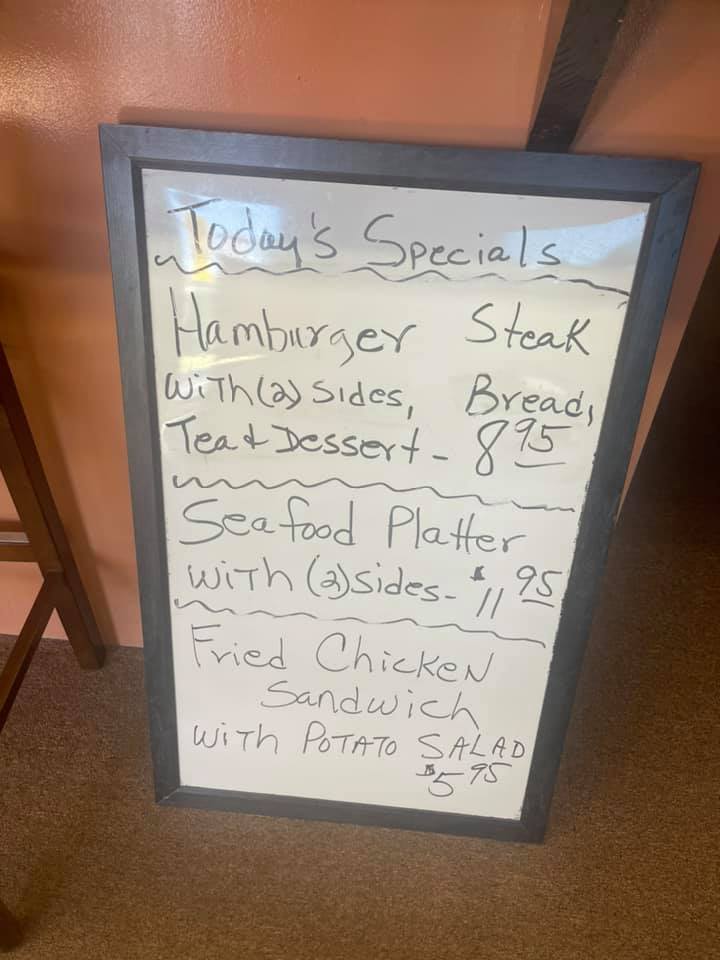 Today's Specials
Hamburger Steak
With (2) Sides, Bread,
Tea & Dessert - 8 95
Seafood Platter
with (2) sides - $11 95
Fried Chicken
Sandwich
with POTATO SALAD
$5 95